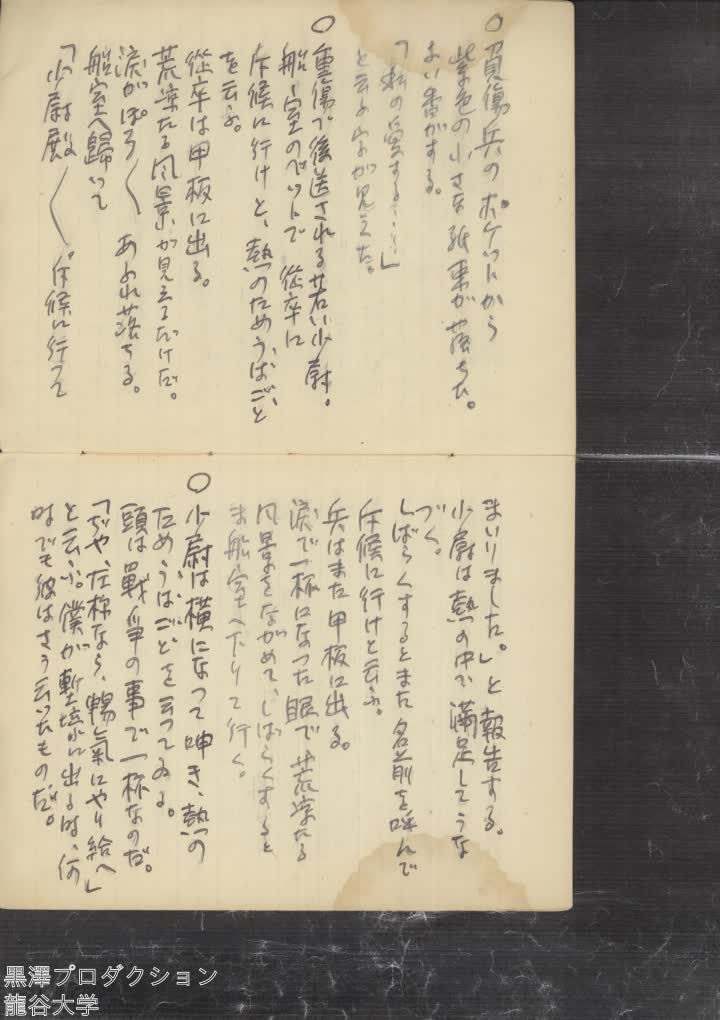 ○負傷兵のポケットから
紫色の小さな紙束が落ちた。
よい香がする。
「私の愛する…」
と云ふ字が見えた。
○重傷で後送される若い少尉。
船室のベットで 從卒に
斥候に行けと、熱のためうはごと
を云ふ。
從卒は甲板に出る。
荒凉たる風景が見えるだけだ。
淚がぽろ〱 あふれ落ちる。
船室へ歸って
「少尉殿〱 斥候に行って
まいりました。」と報告する。
小尉は熱の中で滿足してうな
づく。
しばらくするとまた名前を呼んで
斥候に行けと云ふ。
兵はまた甲板に出る。
淚で一杯になった眼で荒凉たる
風景をながめて、しばらくすると
ま船室へ下りて行く。
○少尉は橫になって呻き、熱の
ためうはごとを云ってゐる。
頭は戰爭の事で一杯なのだ。
「ぢや、左樣なら、暢氣にやり給へ」
と云ふ。僕が塹壕に出る時、何
時でも彼はさう云ったものだ。
黒澤プロダクション
龍谷大学